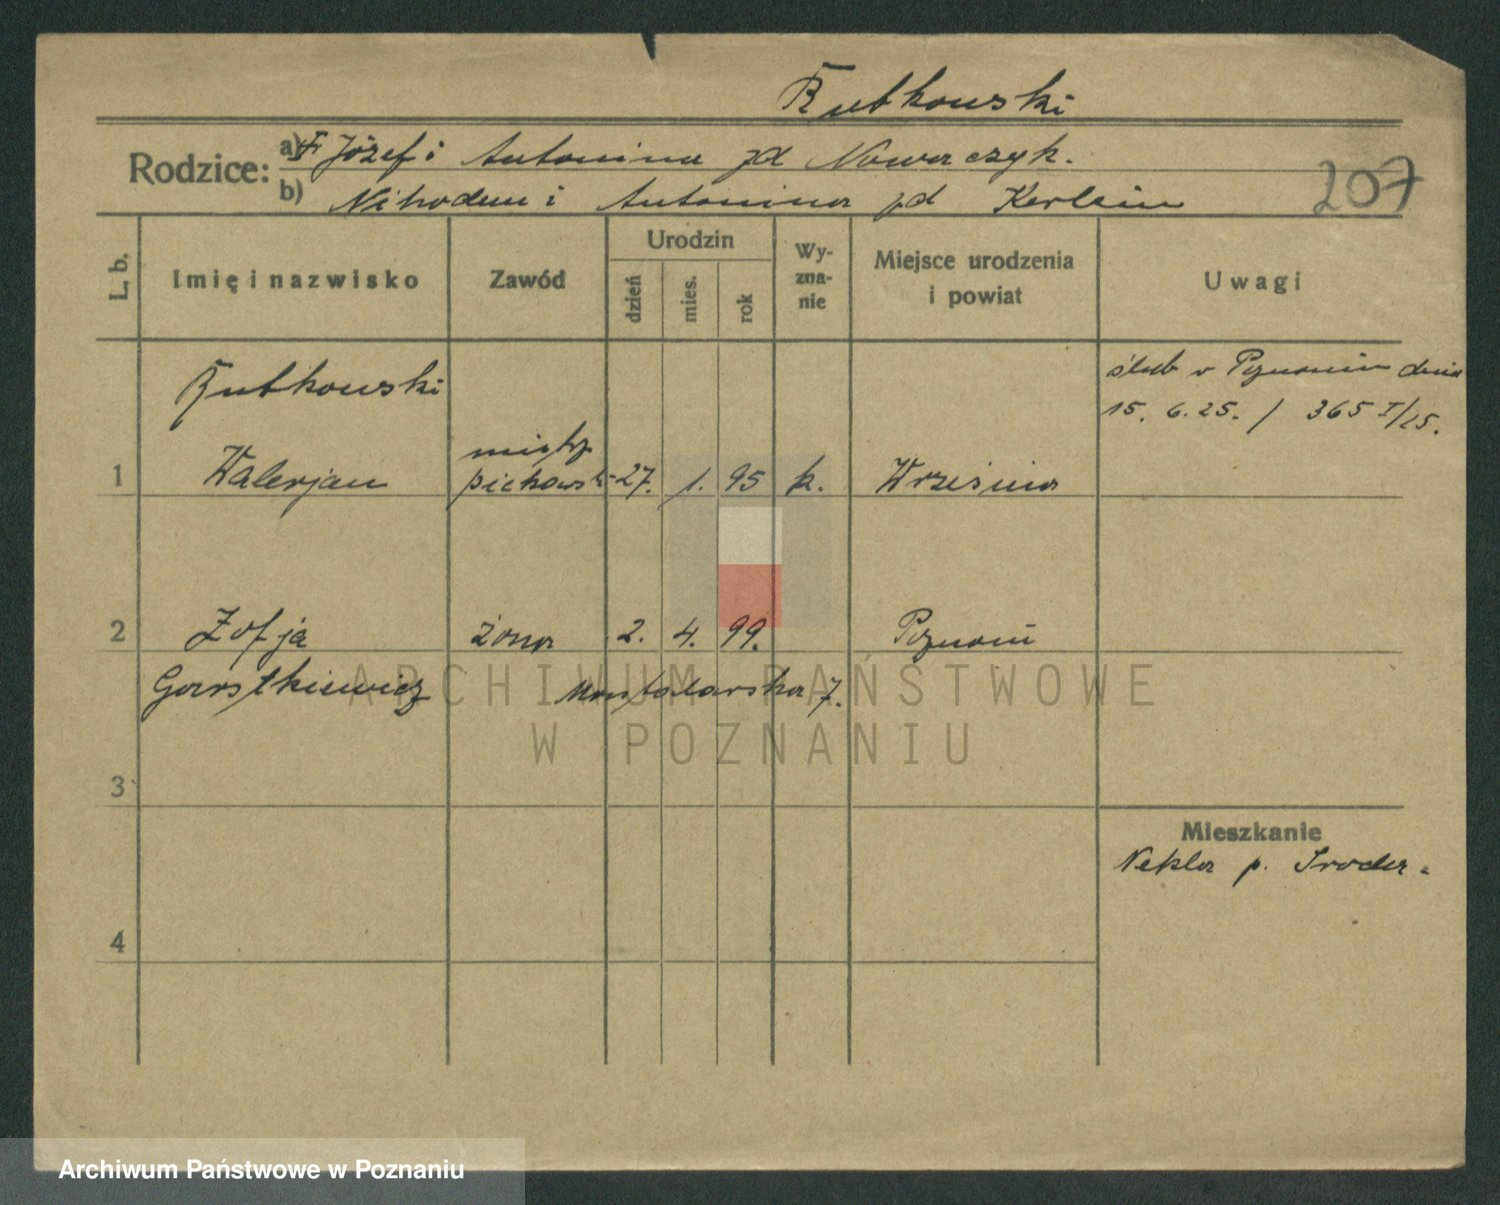 Rutkowski
Rodzice: a) F Józef i Antonina zd Nowaczyk.
b) Nikodem i Antonina zd
207
L. b.
Imię i nazwisko
Zawód
Urodzin
dzień
mies.
rok
Wy-
zna-
nie
Miejsce urodzenia
i powiat
Uwagi
Rutkowski
ślub w Poznaniu dnia
15. 6. 25. / 365 I/25.
mistrz
1 Walerjan piekarski 27. 1. 95 k. Września
2 Zofja żona 2. 4. 99. Poznań
Garstkiewicz 7.
3
4
Mieszkanie
Nekla p. Środa.
ARCHIWUM PAŃSTWOWE
W POZNANIU
Archiwum Państwowe w Poznaniu